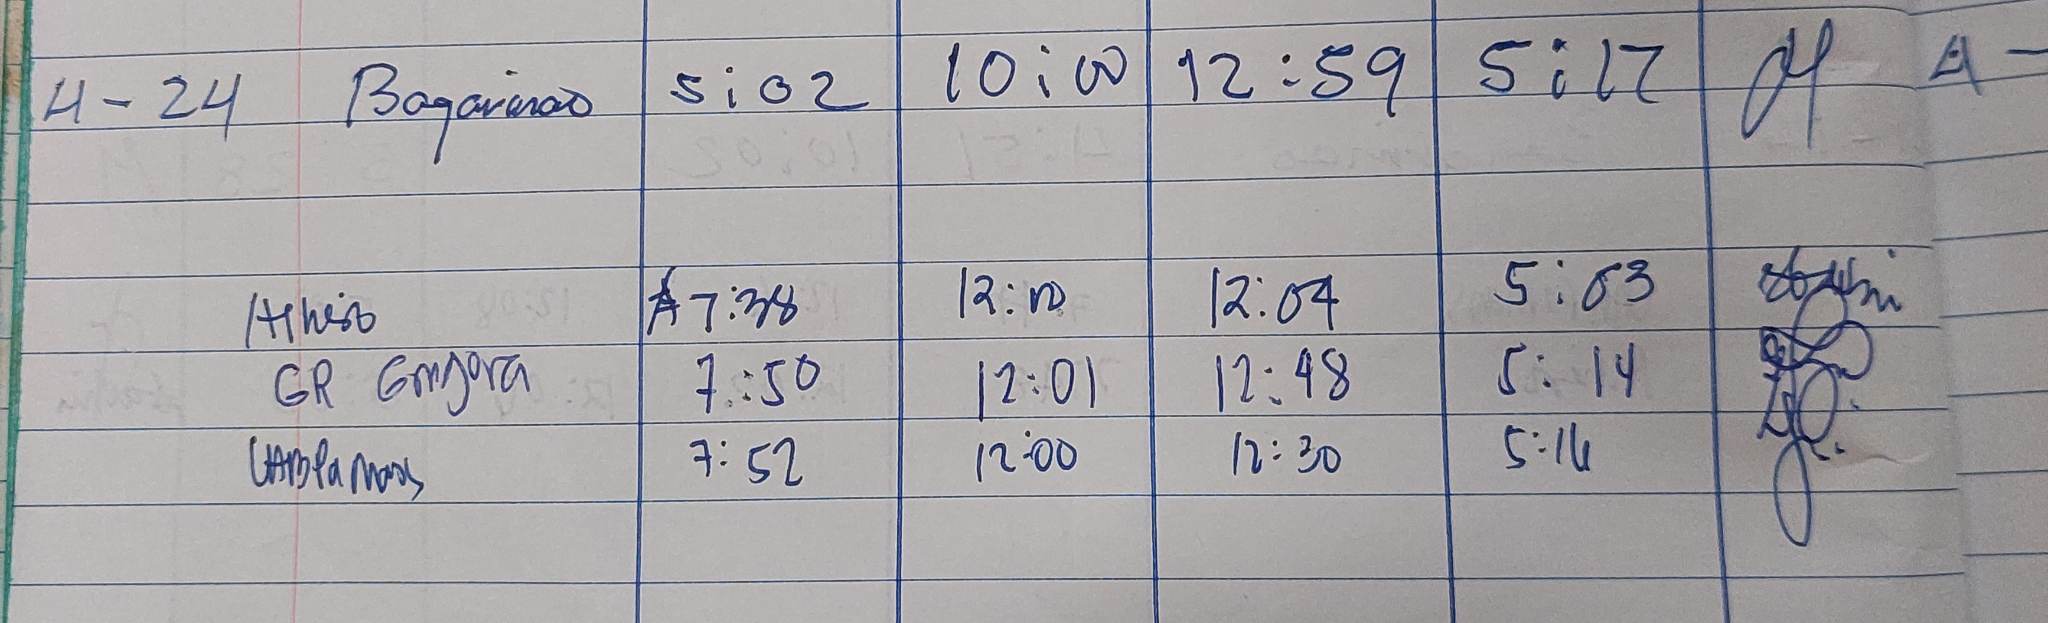 4-24 Bagarinao 5:02 10:00 12:59 5:17 A-
7:38 12:00 12:04 5:03
GR Gongora 7:50 12:01 12:48 5:14
7:52 12:00 12:30 5:16